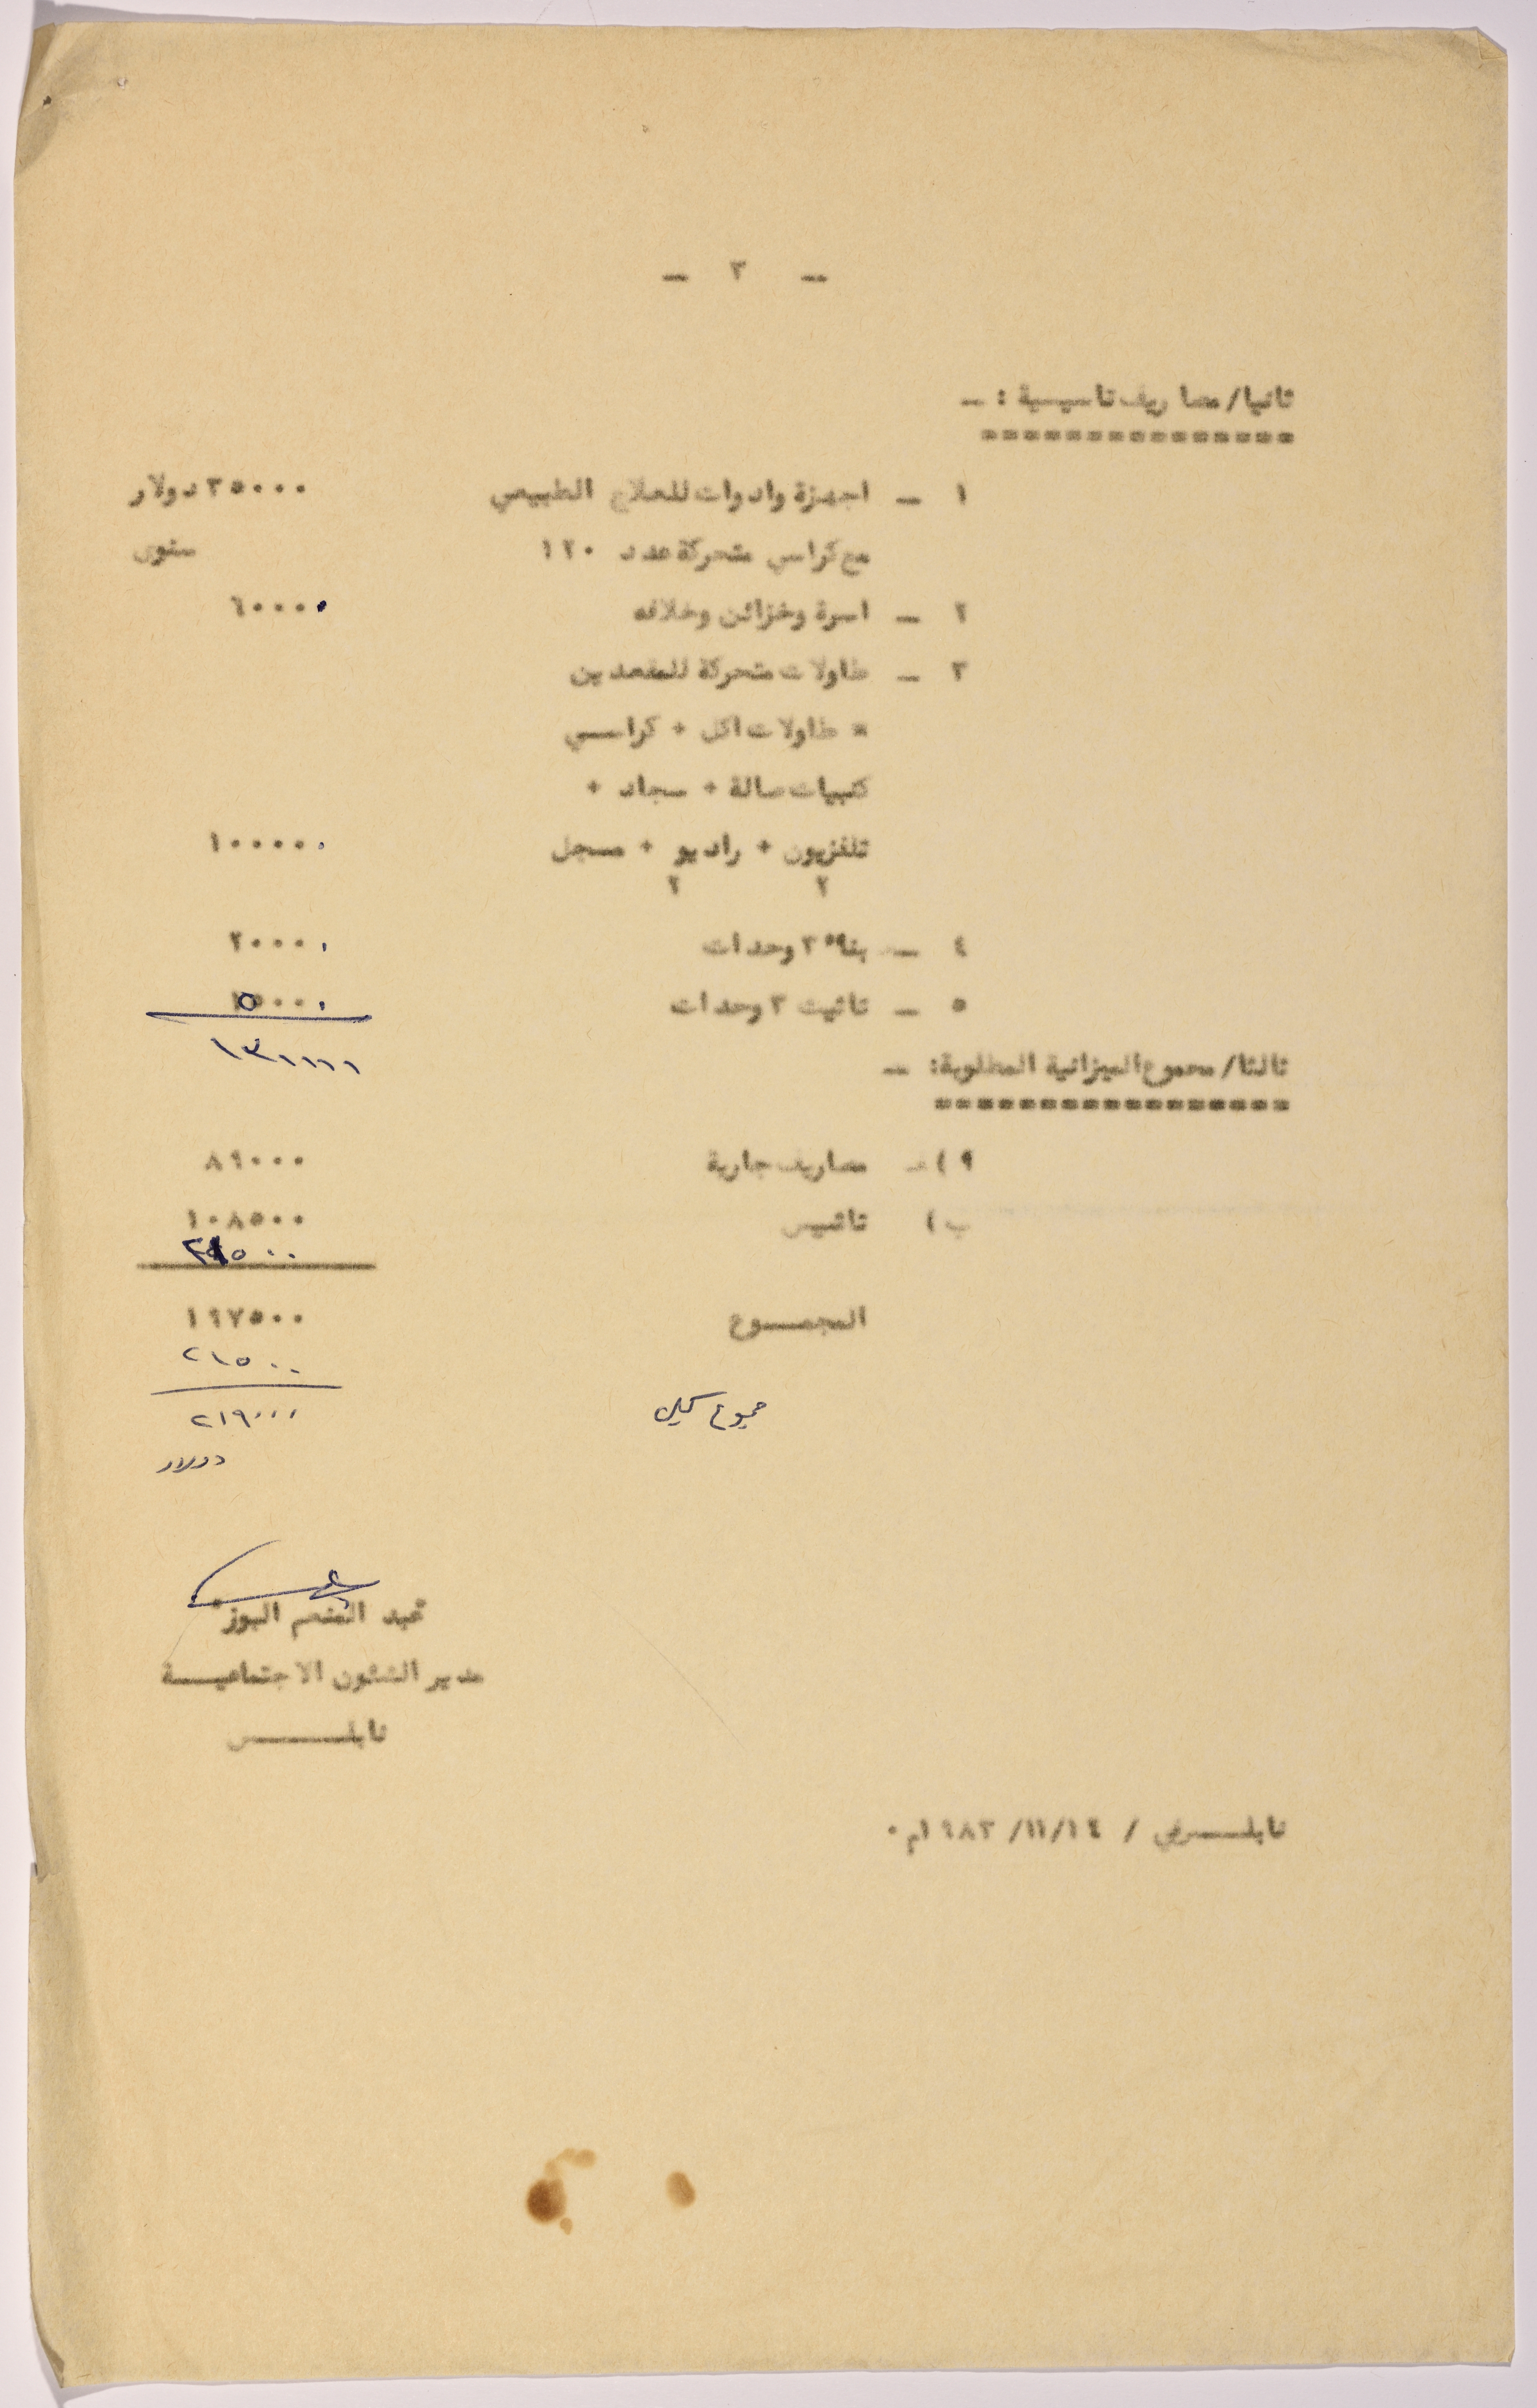 — ٣ —
ثانيا/ مصاريف تاسيسية : —
================
١ — اجهزة وادوات للعلاج الطبيعي ٣٥٠٠٠ دولار
مع كراسي متحركة عدد ١٢٠ سنوى
٢ — اسرة وخزائن وخلافه ٦٠٠٠٠
٣ — طاولات متحركة للمقعدين
* طاولات اكل + كراسي
كنبيات صالة + سجاد +
تلفزيون + راديو + مسجل ١٠٠٠٠٠
٢ ٢
٤ — بناء ٣ وحدات ٢٠٠٠٠
٥ — تاثيث ٣ وحدات
ثالثا/ مجموع الميزانية المطلوبة: —
=================
٩ ) — مصاريف جارية ٨٩٠٠٠
ب ) تاسيس ١٠٨٥٠٠
المجمـــوع ١٩٧٥٠٠
٢١٥٠٠
٢١٩٠٠٠
دولار
عبد المنعم البوز
مدير الشئون الاجتماعيـــة
نابلـــــس
نابلـــس في / ١٤/ ١١/ ١٩٨٣م ٠